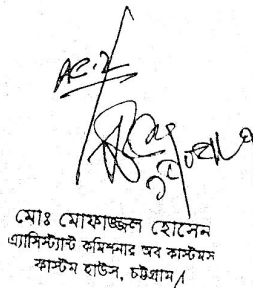 AC-2
মোঃ মোফাজ্জল হোসেন
এ্যাসিস্ট্যান্ট কমিশনার অব কাস্টমস
কাস্টম হাউস, চট্টগ্রাম